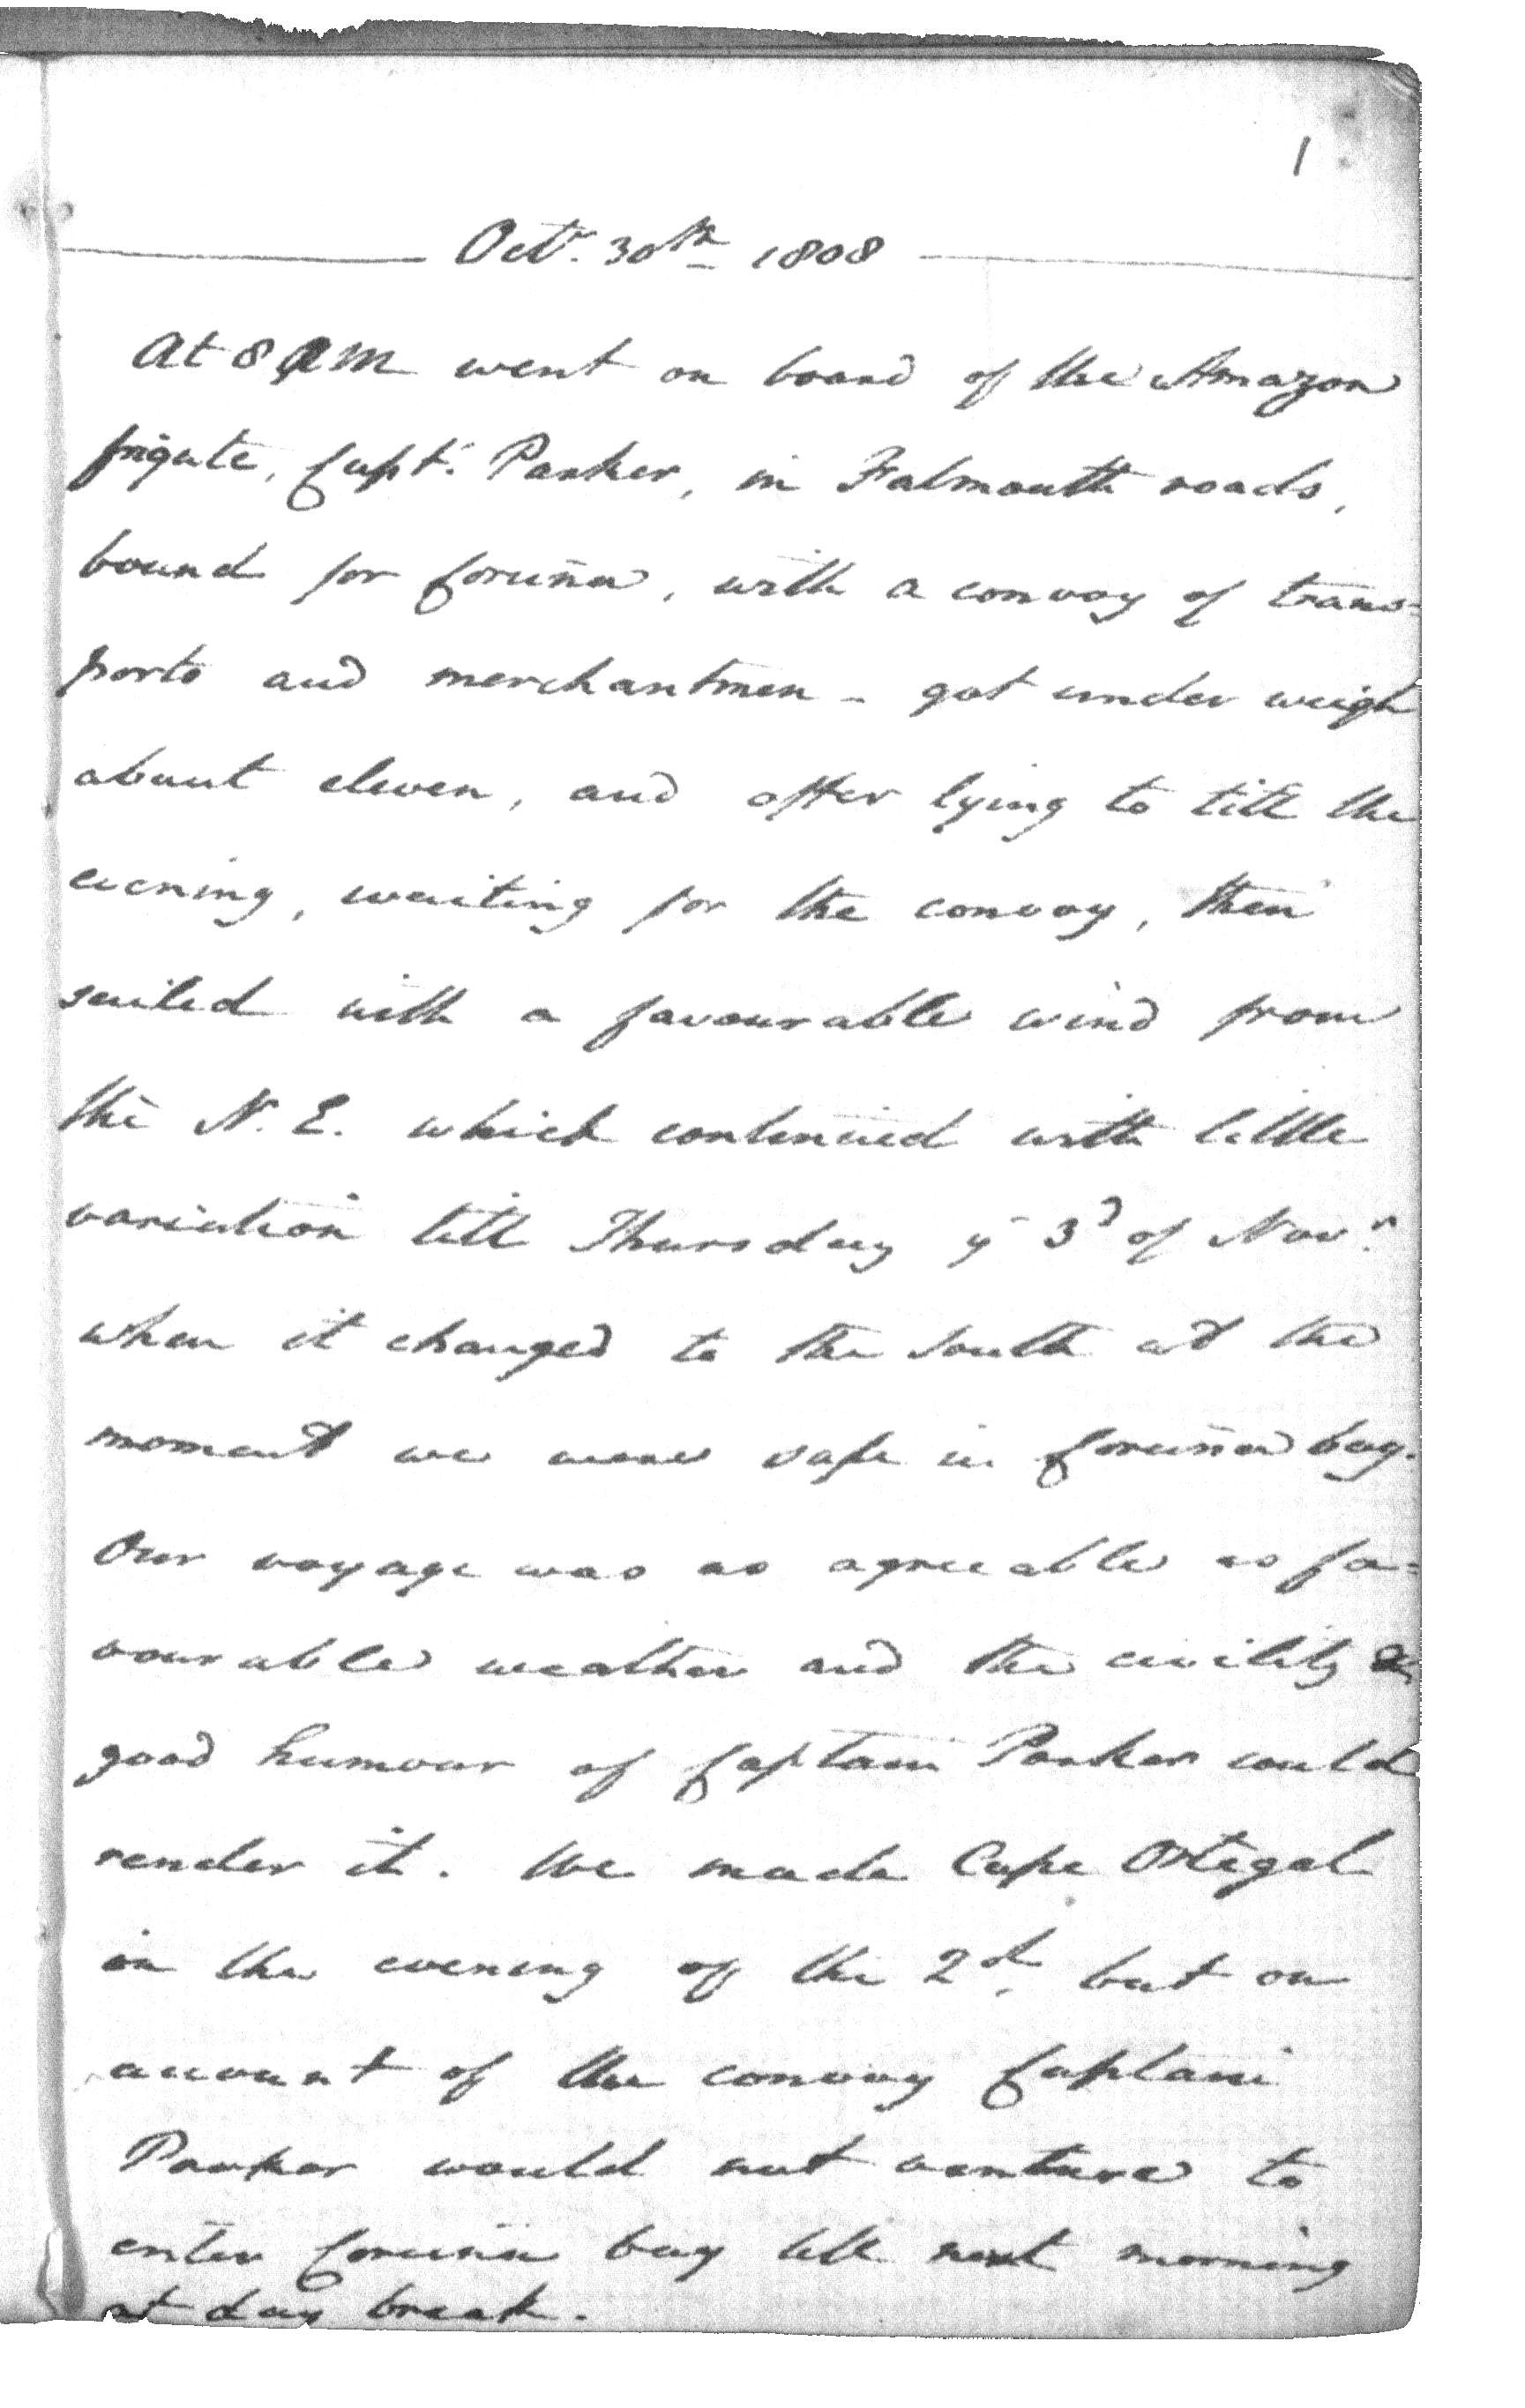 1
Octr. 30th 1808
At 8 AM went on board of the Amazon
frigate, Capt. Parker, in Falmouth roads,
bound for Coruña, with a convoy of trans=
ports and merchantmen - got under weigh
about eleven, and after lying to till the
evening, waiting for the convoy, then
sailed with a favourable wind from
the N. E. which continued with little
variation till Thursday ye 3d of Novr.
when it changed to the South at the
moment we were safe in Coruña bay.
Our voyage was as agreeable as fa=
vourable weather and the civility &
good humour of Captain Parker could
render it. We made Cape Ortegal
in the evening of the 2d, but on
account of the convoy Captain
Parker would not venture to
enter Coruña bay till next morning
at day break.